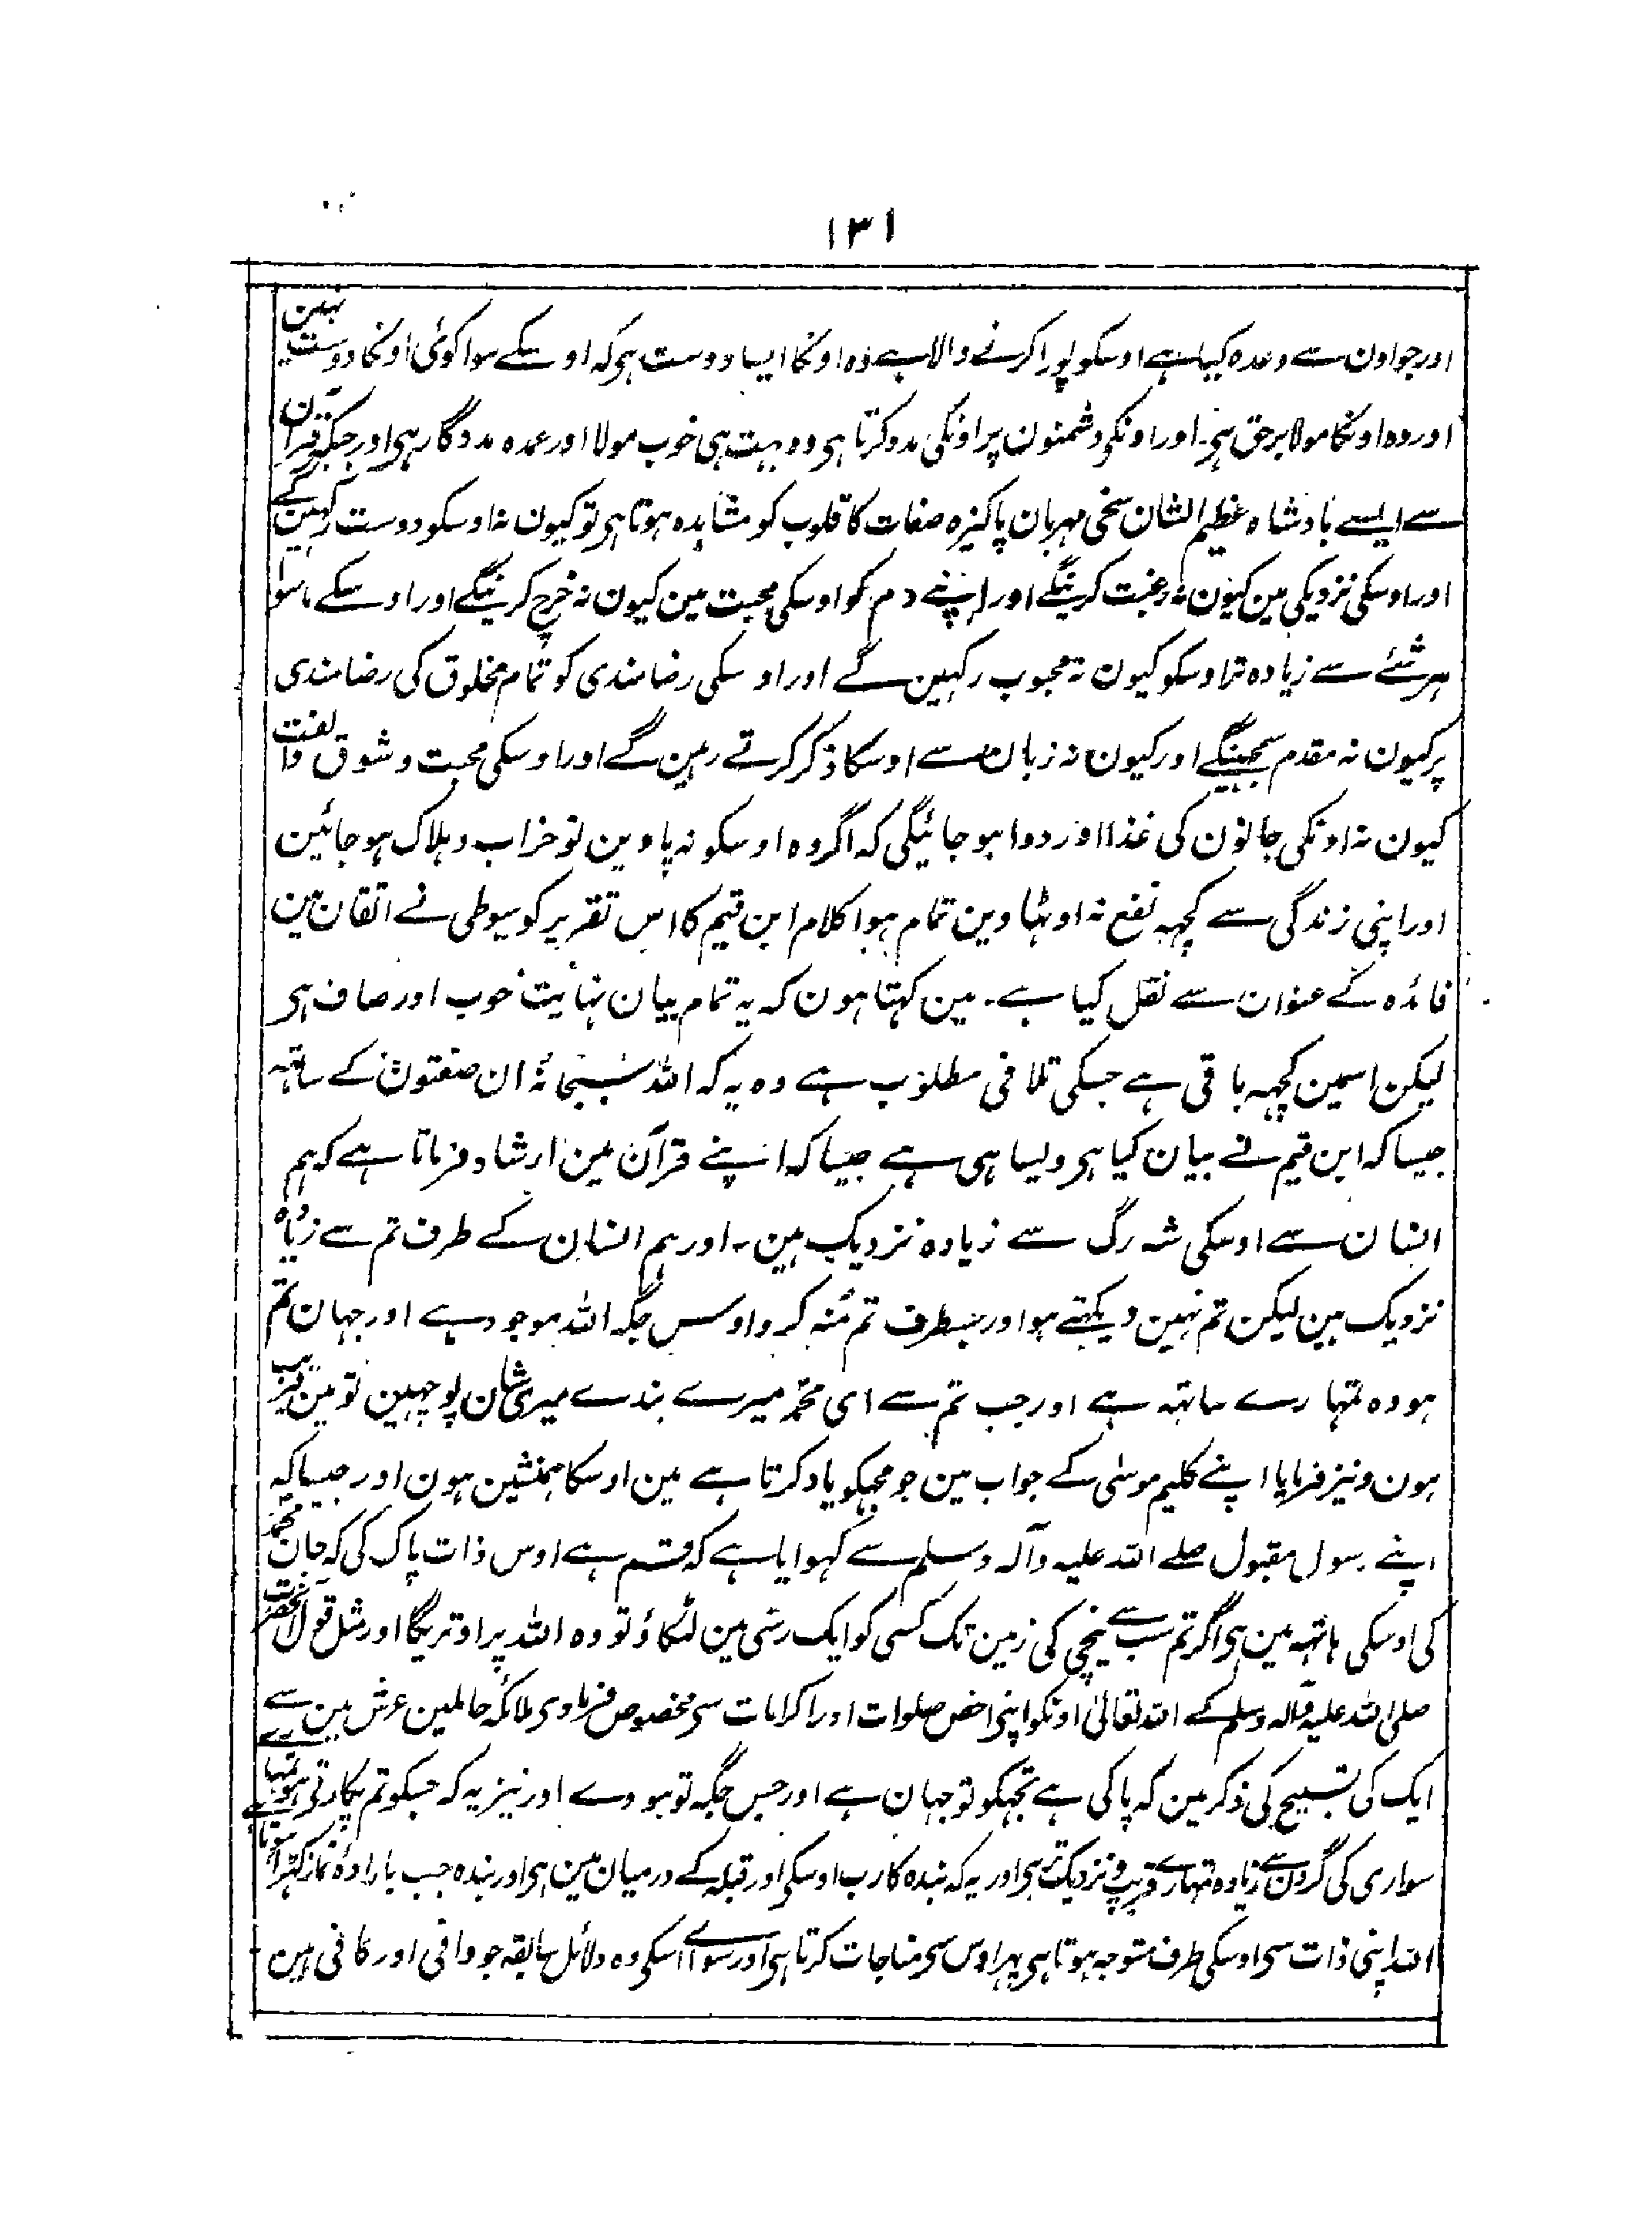 ۱۳۱
اور جو اون سے وعدہ کیا ہے اوسکو پورا کرنے والا ہے وہ اونکا ایسا دوست ہی کہ اوسکے سوا کوئی اونکا دوست نہین
اور وہ اونکا مولا برحق ہی۔ اور اونکی دشمنون پر اونکی مدد کرتا ہی وہ بہت ہی خوب مولا اور عمدہ مددگار ہی اور جبکہ قرآن
سے ایسے بادشاہ عظیم الشان سخی مہربان پاکیزہ صفات کا قلوب کو مشاہدہ ہوتا ہی تو کیون نہ اوسکو دوست رکہین گے
اور اوسکی نزدیکی مین کیون نہ رغبت کرینگے اور اپنے دم کو اوسکی محبت مین کیون نہ خرچ کرینگے اور اوسکے ماسوا
ہر شئے سے زیادہ تر اوسکو کیون نہ محبوب رکہین گے اور اوسکی رضامندی کو تمام مخلوق کی رضامندی
پر کیون نہ مقدم سمجہینگے اور کیون نہ زبان سے اوسکا ذکر کرتے رہین گے اور اوسکی محبت و شوق و الفت
کیون نہ اونکی جانون کی غذا اور دوا ہو جائیگی کہ اگر وہ اوسکو نہ پاوین تو خراب و ہلاک ہو جائین
اور اپنی زندگی سے کچہہ نفع نہ اوٹہاوین تمام ہوا کلام ابن قیم کا اس تقریر کو سیوطی نے اتقان مین
فائدہ کے عنوان سے نقل کیا ہے۔ مین کہتا ہون کہ یہ تمام بیان نہایت خوب اور صاف ہی
لیکن اسمین کچہہ باقی ہے جسکی تلافی مطلوب ہے وہ یہ کہ اللہ سبحانہٗ ان صفتون کے ساتہہ
جیسا کہ ابن قیم نے بیان کیا ہی ویسا ہی ہے جیسا کہ اپنے قرآن مین ارشاد فرماتا ہے کہ ہم
انسان سے اوسکی شہ رگ سے زیادہ نزدیک ہین۔ اور ہم انسان کے طرف تم سے زیادہ
نزدیک ہین لیکن تم نہین دیکہتے ہو اور جسطرف تم مُنہ کرو اوسس جگہ اللہ موجود ہے اور جہان تم
ہو وہ تمہارے ساتہہ ہے اور جب تم سے ای محمدؐ میرے بندے میری شان پوچہین تو مین قریب
ہون و نیز فرمایا اپنے کلیم موسٰی کے جواب مین جو مجہکو یاد کرتا ہے مین اوسکا ہمنشین ہون اور جیسا کہ
اپنے رسول مقبول صلے اللہ علیہ وآلہ وسلم سے کہوایا ہے کہ قسم ہے اوس ذات پاک کی کہ جان محمدؐ
کی اوسکی ہاتہہ مین ہی اگر تم سب سے نیچی کی زمین تک کسی کو ایک رسّی مین لٹکاؤ تو وہ اللہ پر اوتریگا اور مثل قول آنحضرت
صلی اللہ علیہ وآلہ وسلم کے اللہ تعالیٰ اونکو اپنی اخص صلوات اور اکرامات سی مخصوص فرماوی ملائکہ حاملین عرش مین سے
ایک کی تسبیح کی ذکر مین کہ پاکی ہے تجہکو تو جہان ہے اور جس جگہ تو ہووے اور نیز یہ کہ جسکو تم پکارتی ہو تمہارے
سواری کی گردن سے زیادہ تمہارے قریب و نزدیک تر ہی اور یہ کہ بندہ کا رب اوسکی اور قبلہ کے درمیان مین ہی اور بندہ جب بارادۂ نماز کہڑا ہوتا ہے
اللہ اپنی ذات سی اوسکی طرف متوجہ ہوتا ہی پہر اوس سی مناجات کرتا ہی اور سوائے اسکی وہ دلائل سابقہ جو وافی اور کافی ہین